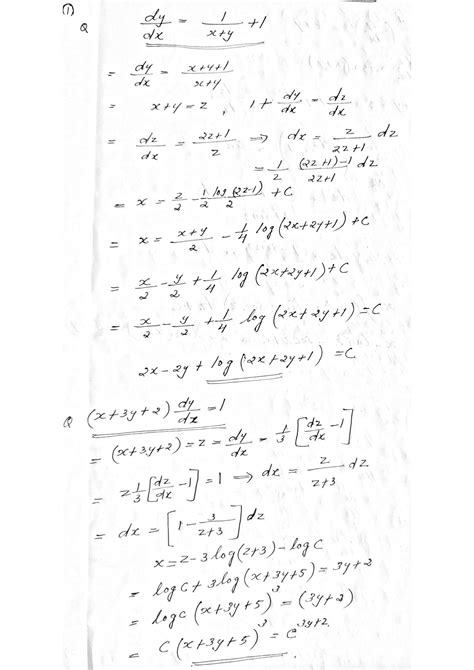 ①
Q dy/dx = 1/(x+y) + 1
= dy/dx = (x+y+1)/(x+y)
= x+y = z , 1 + dy/dx = dz/dx
= dz/dx = (2z+1)/z ⇒ dx = z/(2z+1) dz
= 1/2 ((2z+1)-1)/(2z+1) dz
= x = z/2 - 1/2 log(2z-1)/2 + C
= x = (x+y)/2 - 1/4 log(2x+2y+1) + C
= x/2 - y/2 + 1/4 log(2x+2y+1) + C
= x/2 - y/2 + 1/4 log(2x+2y+1) = C
2x-2y + log(2x+2y+1) = C
Q (x+3y+2) dy/dx = 1
= (x+3y+2) = z = dy/dx = 1/3 [dz/dx - 1]
= z 1/3 [dz/dx - 1] = 1 ⇒ dx = z/(z+3) dz
= dx = [1 - 3/(z+3)] dz
x = z-3 log(z+3) - log C
= log C + 3 log(x+3y+5) = 3y+2
= log C (x+3y+5)³ = (3y+2)
= C (x+3y+5)³ = e^(3y+2)